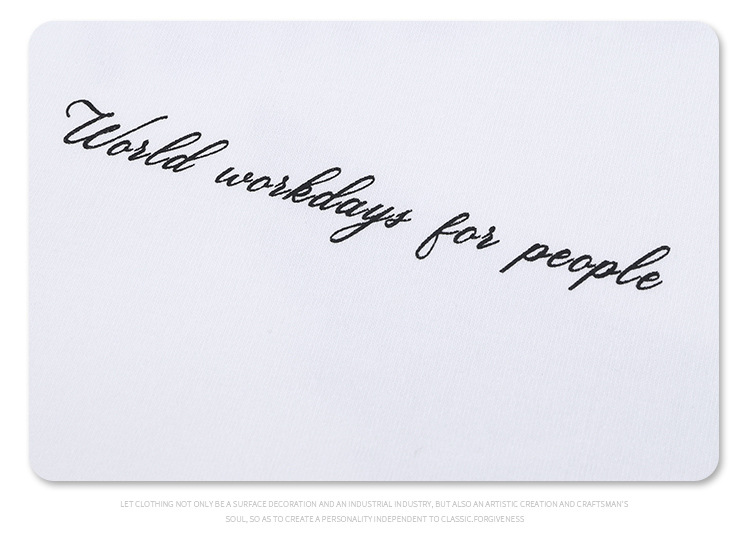 World workdays for people
LET CLOTHING NOT ONLY BE A SURFACE DECORATION AND AN INDUSTRIAL INDUSTRY, BUT ALSO AN ARTISTIC CREATION AND CRAFTSMAN'S
SOUL, SO AS TO CREATE A PERSONALITY INDEPENDENT TO CLASSIC.FORGIVENESS